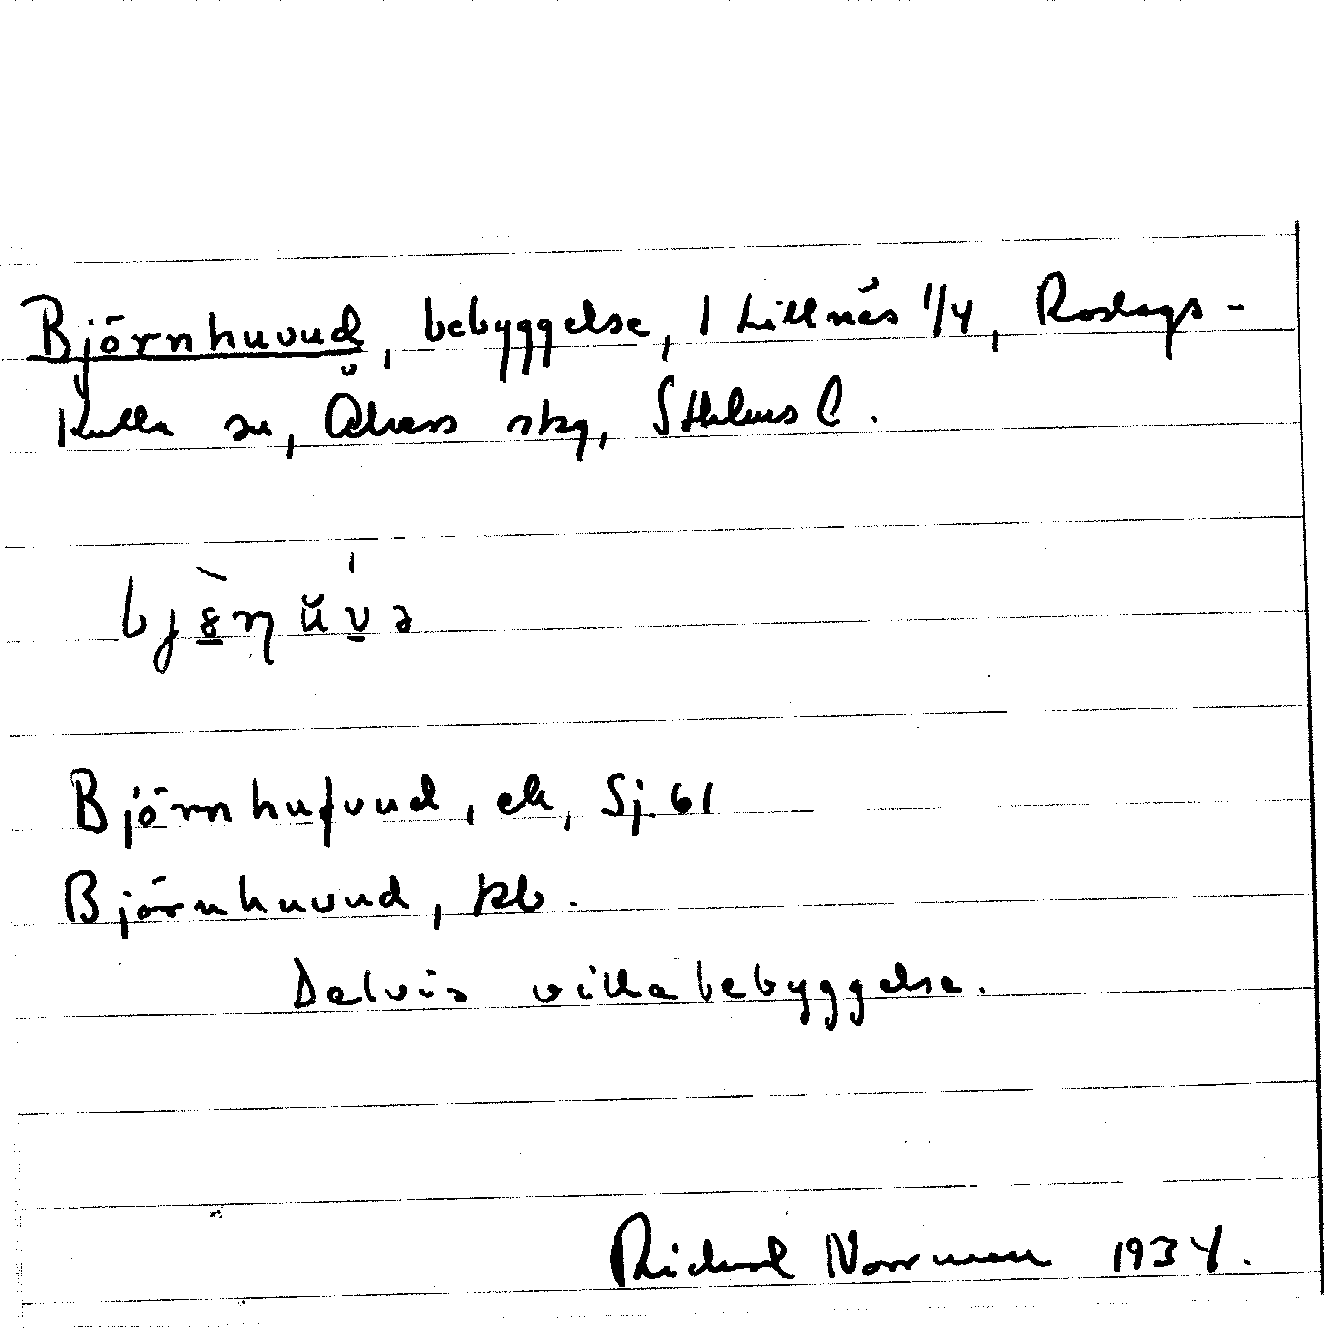 Björnhuvud, bebyggelse, 1 Lillnäs 1/4, Roslags-
Kulla sn, Åkers skg, Sthlms l.
bjönŭvə
Björnhufvud, ek, Sj. 61
Björnhuvud, kb.
Delvis villabebyggelse.
Rickard Norrman 1934.